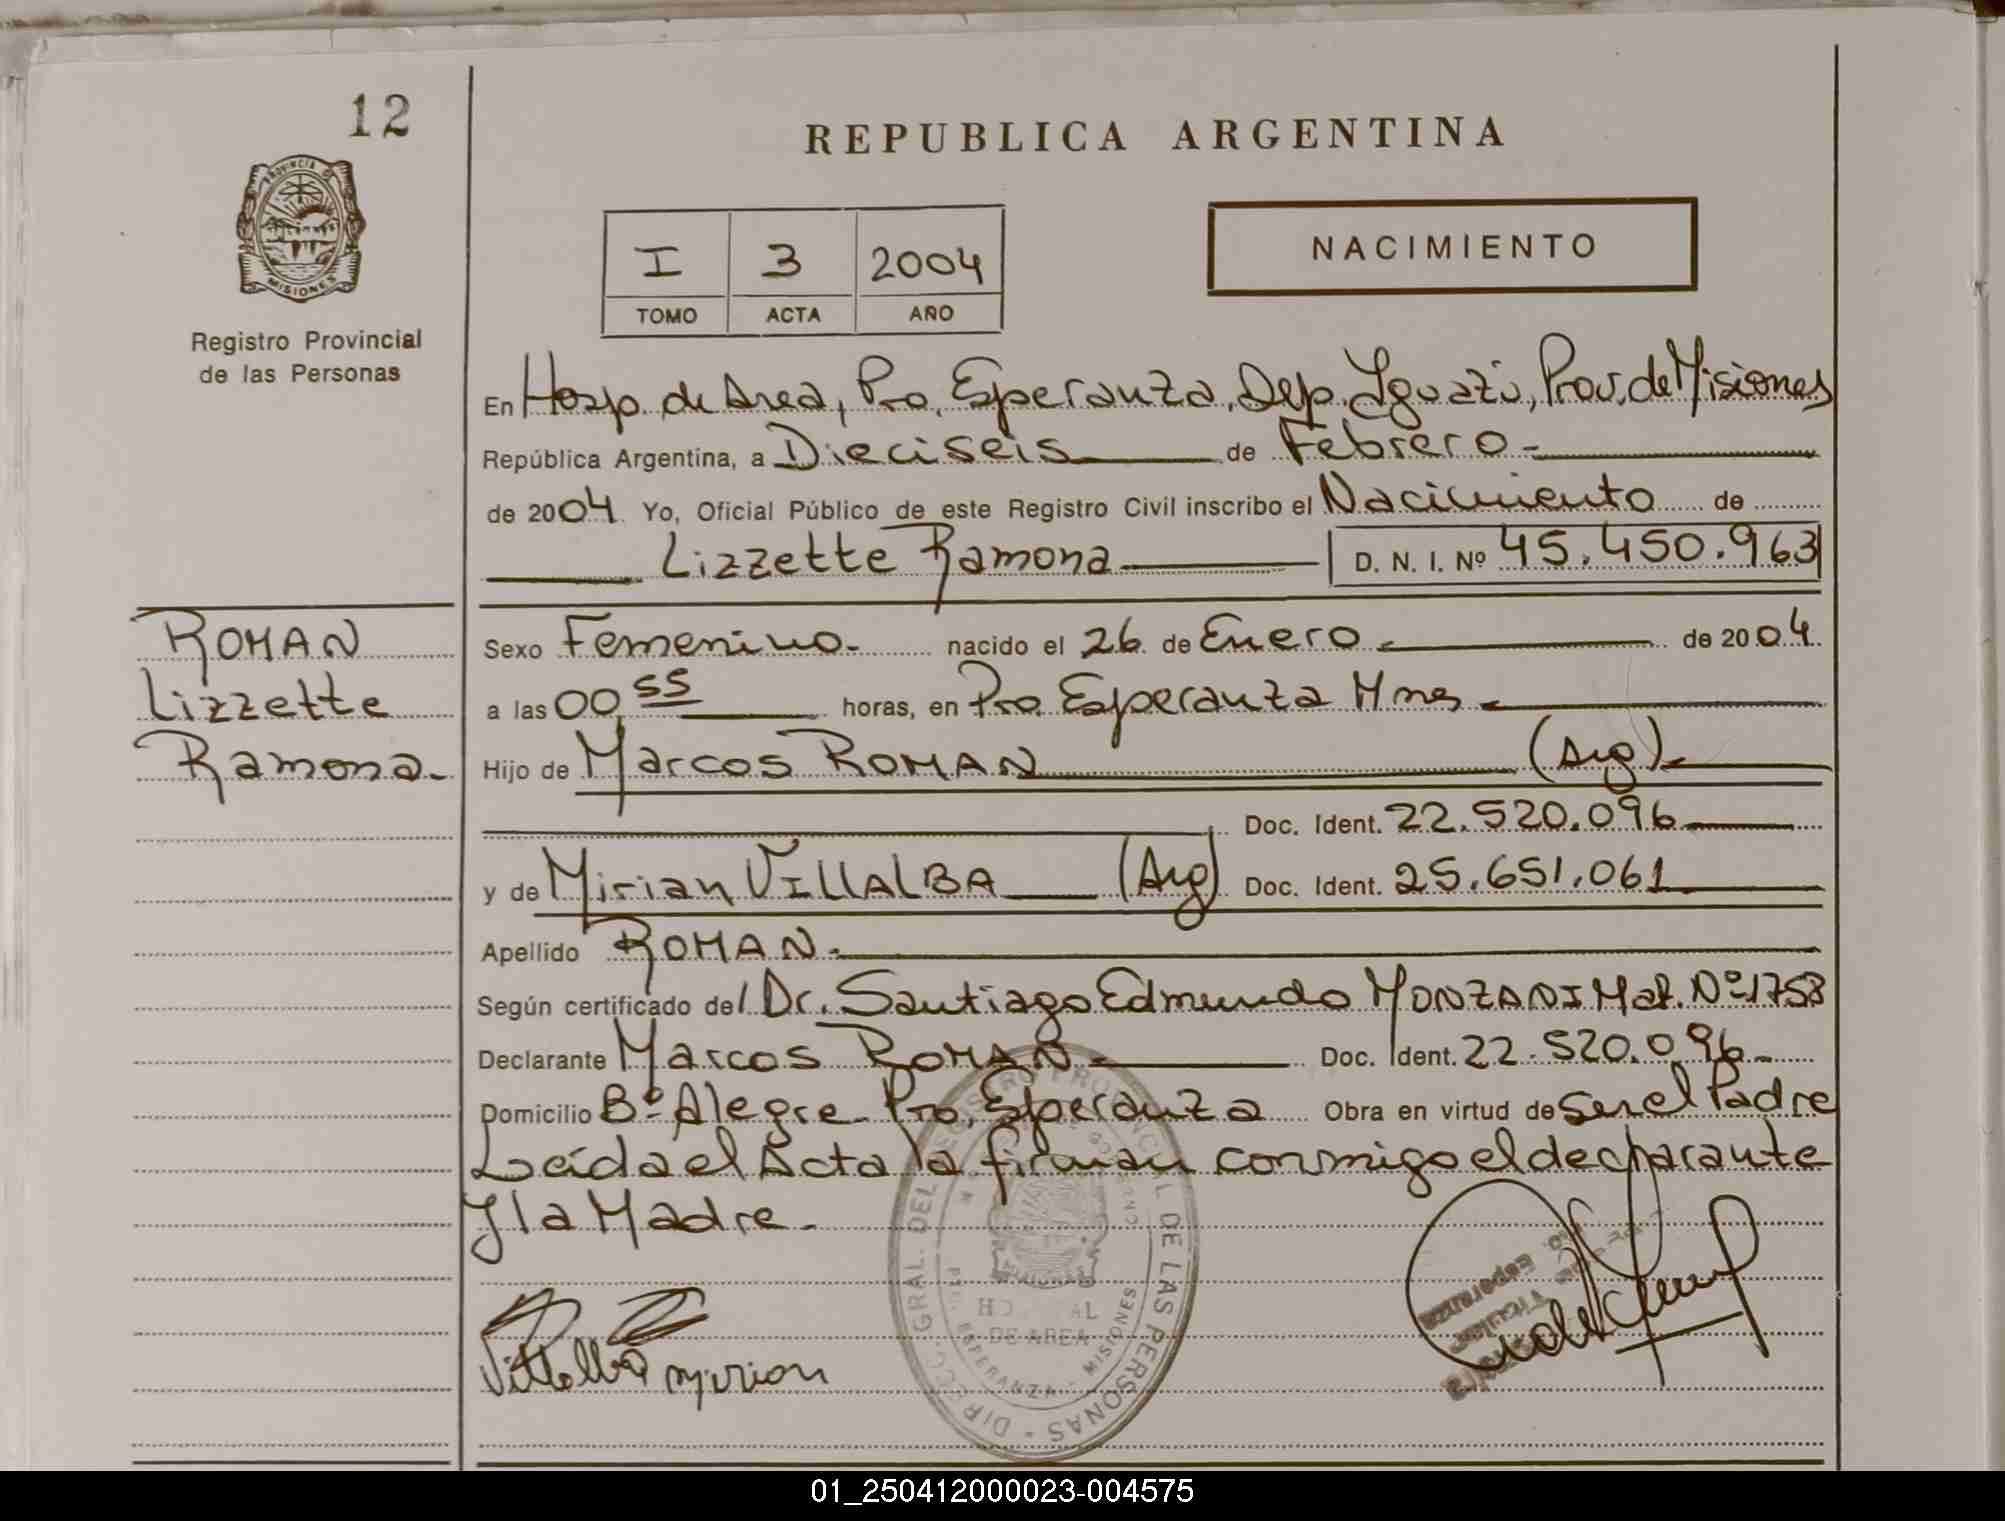 12
PROVINCIA DE
MISIONES
Registro Provincial
de las Personas
REPUBLICA ARGENTINA
I 3 2004
TOMO ACTA AÑO
NACIMIENTO
En Hosp. de Area, Pto. Esperanza, Dep. Iguazú, Prov. de Misiones
República Argentina, a Dieciseis de Febrero
de 2004 Yo, Oficial Público de este Registro Civil inscribo el Nacimiento de
Lizzette Ramona D. N. I. Nº 45.450.963
ROMAN
Lizzette
Ramona
Sexo Femenino nacido el 26 de Enero de 2004
a las 00 55 horas, en Pto. Esperanza Mnes
Hijo de Marcos ROMAN (Arg)
Doc. Ident. 22.520.096
y de Mirian VILLALBA (Arg) Doc. Ident. 25.651.061
Apellido ROMAN
Según certificado del Dr. Santiago Edmundo MONZANI Mat. Nº 1753
Declarante Marcos ROMAN Doc. Ident. 22.520.096
Domicilio Bº Alegre Pto. Esperanza Obra en virtud de Ser el Padre
Leída el Acta la firman conmigo el declarante
y la Madre.
DIRECC. GRAL. DEL REGISTRO PROVINCIAL DE LAS PERSONAS
DE AREA
ESPERANZA - MISIONES
Villalba Mirian
Titular
Esperanza
01_250412000023-004575